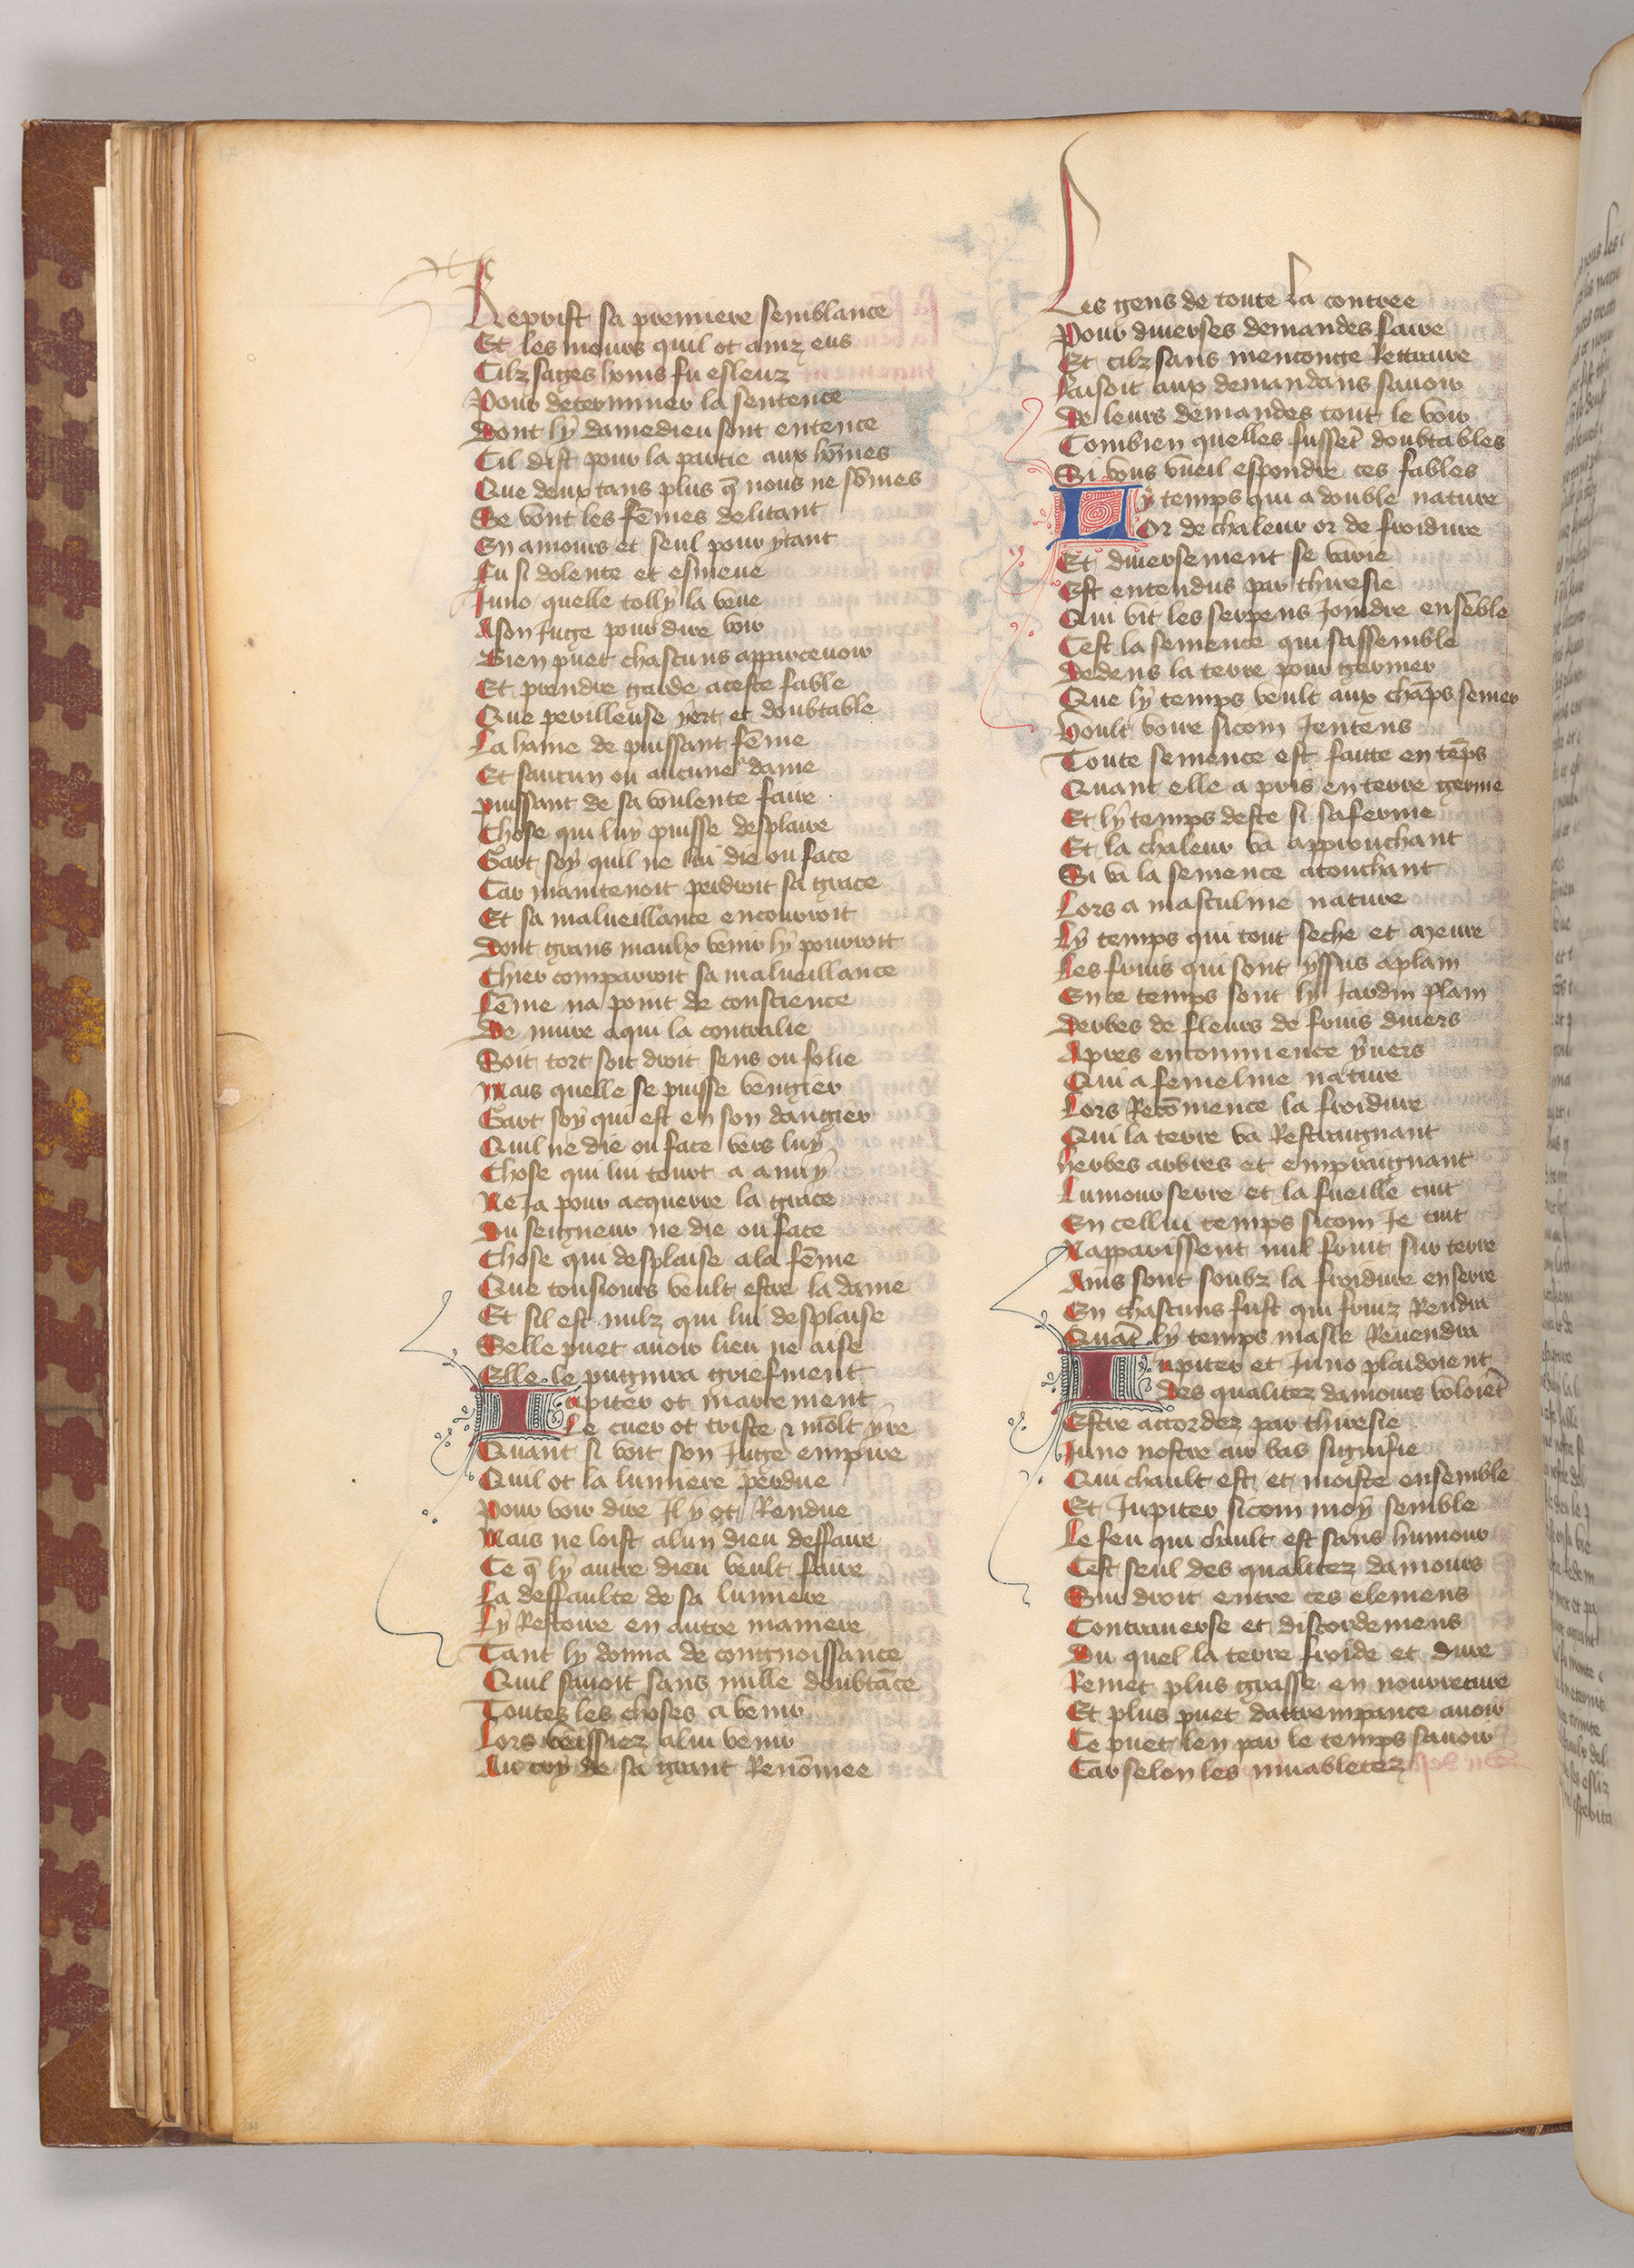 Reprist sa premiere semblance
Et les meurs quil ot ainz eus
Cilz sages homs fu esleuz
Pour determiner la sentence
Dont ly damedieu sont entence
Cil dist pour la partie aux hōmes
Que deux tans plus q̄ nous ne sōmes
Se vont les fēmes delitant
En amours et seul pour ytant
Fu si dolente et esmeue
Juno quelle tolly la veue
A son Juge pour dire voir
Bien puet chascuns apparcevoir
Et prendre garde a ceste fable
Que perilleuse yert et doubtable
La haine de puissant fēme
Et saucun ou aucune dame
puissant de sa voulente faire
Chose qui luy puisse desplaire
Gart soy quil ne lui die ou face
Car maintenoit perdroit sa grace
Et sa malveillance encourroit
Dont grans maulx venir ly pourroit
Chier comparroit sa malveillance
Fēme na point de conscience
De nuire a qui la contralie
Soit tort soit droit sens ou folie
Mais quelle se puisse vengier
Gart soy qui est en son dangier
Quil ne die ou face vers luy
Chose qui lui tourt a anuy
Ne Ja pour acquerre la grace
Du seigneur ne die ou face
Chose qui desplaise a la fēme
Que tousiours veult estre la dame
Et sil est nulz qui lui desplaise
Selle puet avoir lieu ne aise
Elle le pugnira griefment
Jupiter ot marrement
Le cuer ot triste ⁊ mōlt yre
Quant si voit son Juge empire
Quil ot la lumiere perdue
Pour voir dire Il y ot Rendue
Mais ne loist a lun dieu deffaire
Ce q̄ ly autre dieu veult faire
La deffaulte de sa lumiere
Ly Restoire en autre maniere
Tant ly donna de congnoissance
Quil savoit sans nulle doubtāce
Toutes les choses a venir
Lors veissiez a lui venir
Au cry de sa grant Renōmee
Les gens de toute la contree
Pour diverses demandes faire
Et cilz sans menconge Rettraire
Faisoit aux demandans savoir
De leurs demandes tout le voir
Combien quelles fussēt doubtables
Si vous vueil espondre ces fables
Ly temps qui a double nature
Or de chaleur or de froidure
Et diversement se varie
Est entendus par thiresie
Qui vit les serpens Joindre ensēble
Cest la semence qui sassemble
Dedens la terre pour germer
Que ly temps veult aux chāps semer
Voult voire sicom Jentens
Toute semence est faitte en tēps
Quant elle a pris en terre germe
Et ly temps deste si saferme
Et la chaleur va approuchant
Si va la semence atouchant
Lors a masculine nature
Ly temps qui tout seche et meure
Les fruis qui sont yssus a plain
En ce temps sont ly Jardin plain
Derbes de fleurs de fruis divers
Apres encommence yvers
Qui a femeline nature
Lors Recōmence la froidure
Qui la terre va Restraignant
Herbes arbres et empraignant
Lumour serre et la fueille cuit
En cellui temps sicom Je cuit
Napparissent nul fruit sur terre
Ains sont soubz la froidure enserre
En chascuns fust qui fruiz Rendra
Quāt ly temps masle Revendra
Jupiter et Juno plaidoient
Des qualitez damours voloiēt
Estre accordez par thiresie
Juno nostre air bas signifie
Qui chault est et moiste ensemble
Et Jupiter sicom moy semble
Le feu qui chault est sans humour
Cest seul des qualitez damours
Sur droit entre ces elemens
Contraverse et discordemens
Du quel la terre froide et dure
Remet plus grasse en nourreture
Et plus puet dattrempance avoir
Ce puet len par le temps savoir
Car selon les muabletez